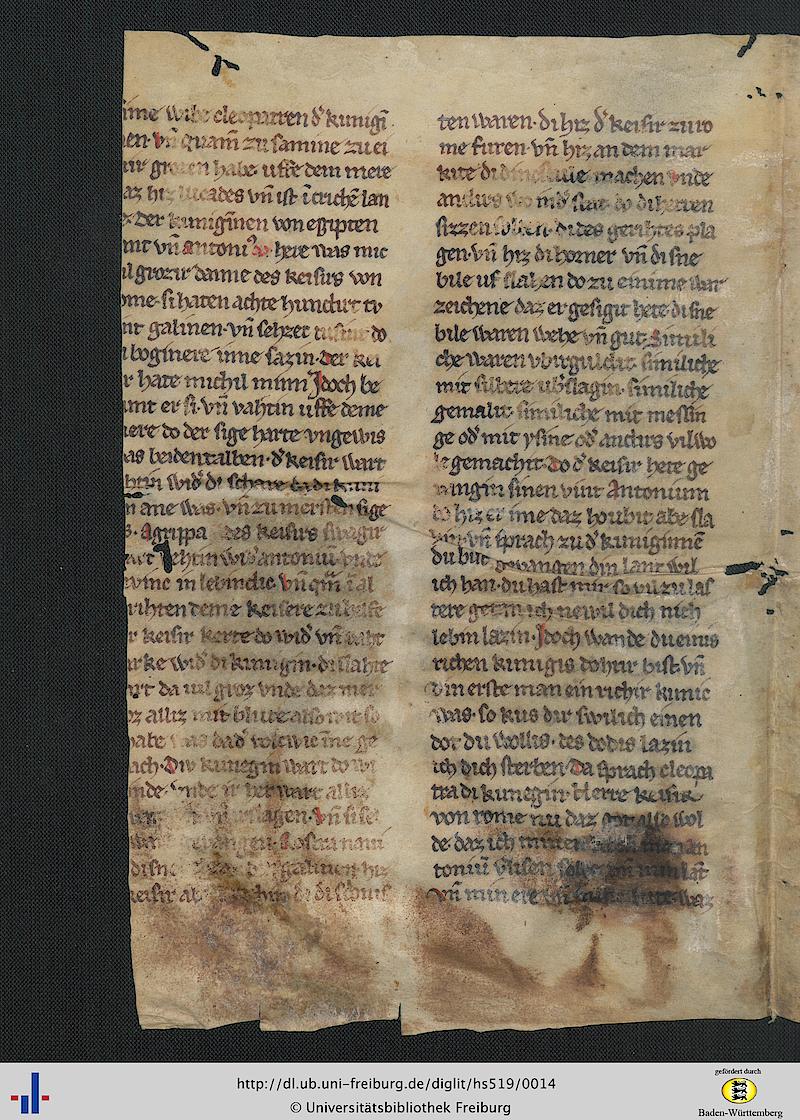 ime wibe cleopatren d' kunigī
en. vn̄ quam̄ zu samine zu ei
ur grozen habe uffe dem mere
az hiz vn̄ ist ī crichē lan
der kuniginen von egipten
mt vn̄ antoni here was mic
il grozir danne des keisirs von
ome. si haten achte hundirt tv
nt galinen. vn̄ sehzec tusint do
boginere inne sazin. der kei
r hate michil minni Jdoch be
unt er si. vn̄ vahtin uffe deme
ere do der sige harte ungewis
as beidentalben. d' keisir wart
htin wid' di schare da di kuni
n ane was. vn̄ zu mersten sige
Agrippa des keisirs swagir
vehtin wid' antoniū. vnde
in lebindic. vn̄ qm̄
rihten deme keisere zu helfe
r keisir kerte do wid' vn̄ vaht
rke wid' di kunigin. di slahte
art da uil groz vnde daz mer
az alliz mit blute also mit
ach. Div kunegin wart do
nde. vnde ir her wart alliz
erslagen. vn̄ si
gevangen.
galinen hiz
keisir
ten waren. di hiz d' keisir zu ro
me furen. vn̄ hiz an dem mar
kite di machen vnde
andirs do di herren
sizzen solden. di des gerihtes pla
gen. vn̄ hiz di horner vn̄ di sne
bile uf slahen do zu einime war
zeichene daz er gesigit hete di sne
bile waren wehe vn̄ gut. Simili
che waren vbirguldit. similiche
mit silbere ub'slagin. similiche
gemalit. similiche mit messin
ge od' mit ysine od' andirs vil wo
le gemachit. Do d' keisir hete ge
vangin sinen vint Antonium
do hiz er ime daz houbit abe sla
hin. vn̄ sprach zu d' kuniginnē
du bist gevangen din lant wil
ich han. du hast mir so vil zu las
tere getan ich ne wil dich nich
lebin lazin. Jdoch wande du einis
richen kunigis dohtir bist. vn̄
din erste man ein richir kunic
was. so kus dir swilich einen
dot du wollis. des dodis lazin
ich dich sterben. Da sprach cleopa
tra di kunegin. Herre keisir
von rome nu daz got also wol
de daz ich minen an
toniū vlisen solde
vn̄ min ere vn̄ was
http://dl.ub.uni-freiburg.de/diglit/hs519/0014
© Universitätsbibliothek Freiburg
gefördert durch
Baden-Württemberg